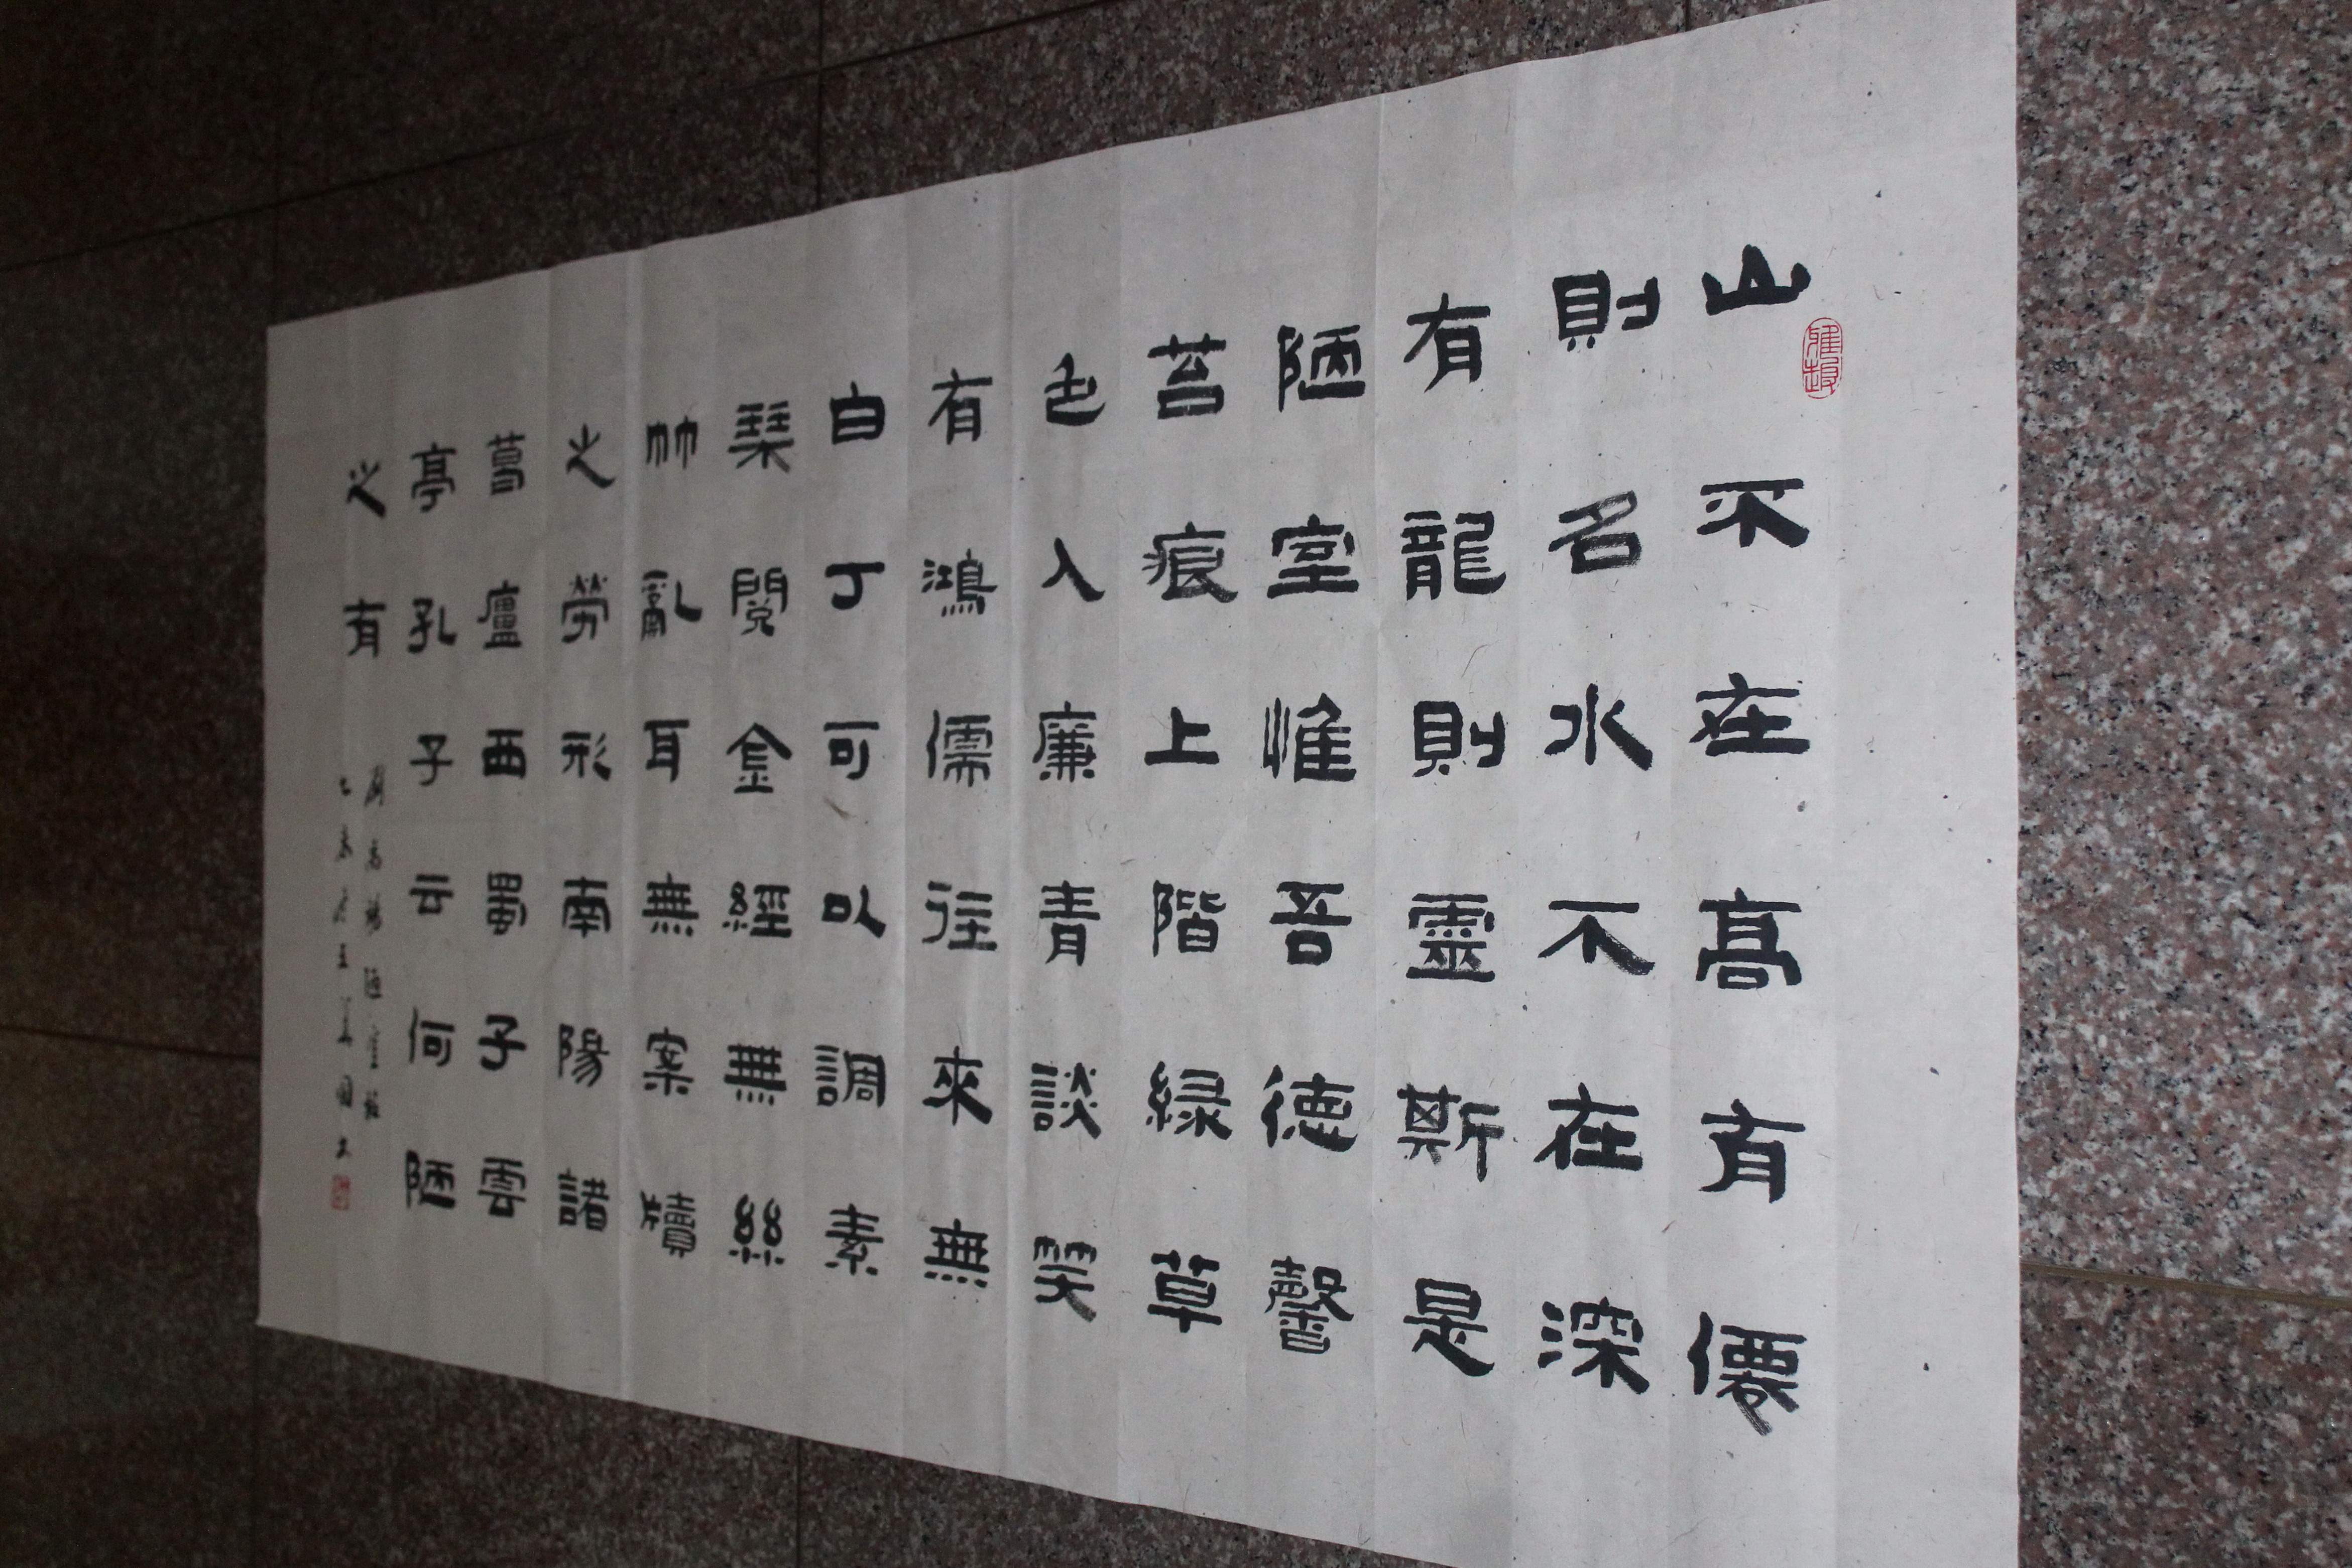 雅趣
山不在髙有僊
則名水不在深
有龍則靈斯是
陋室惟吾徳馨
苔痕上階緑草
色入廉青談笑
有鴻儒往來無
白丁可以調素
琴閱金經無絲
竹亂耳無案牘
之勞形南陽諸
葛廬西蜀子雲
亭孔子云何陋
之有
劉禹錫陋室銘
乙未